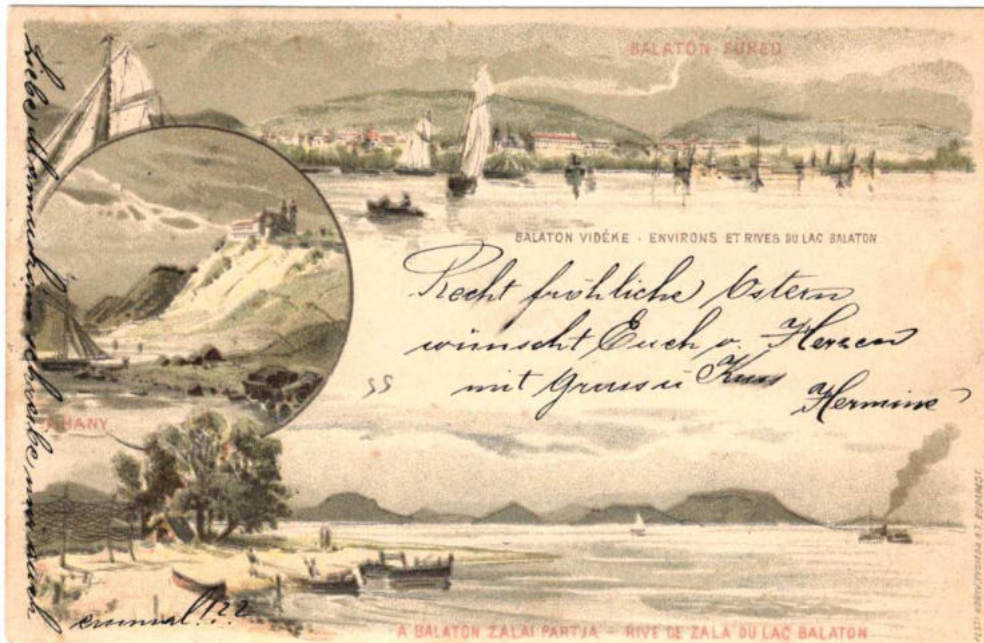 BALATON-FÜRED
BALATON VIDÉKE - ENVIRONS ET RIVES DU LAC BALATON
Recht fröhliche Ostern
wünscht Euch v. Herzen
mit Gruss u Kuss
Hermine
HANY
Liebe schreibe mir auch
einmal!??
A BALATON ZALAI PARTJA - RIVE DE ZALA DU LAC BALATON